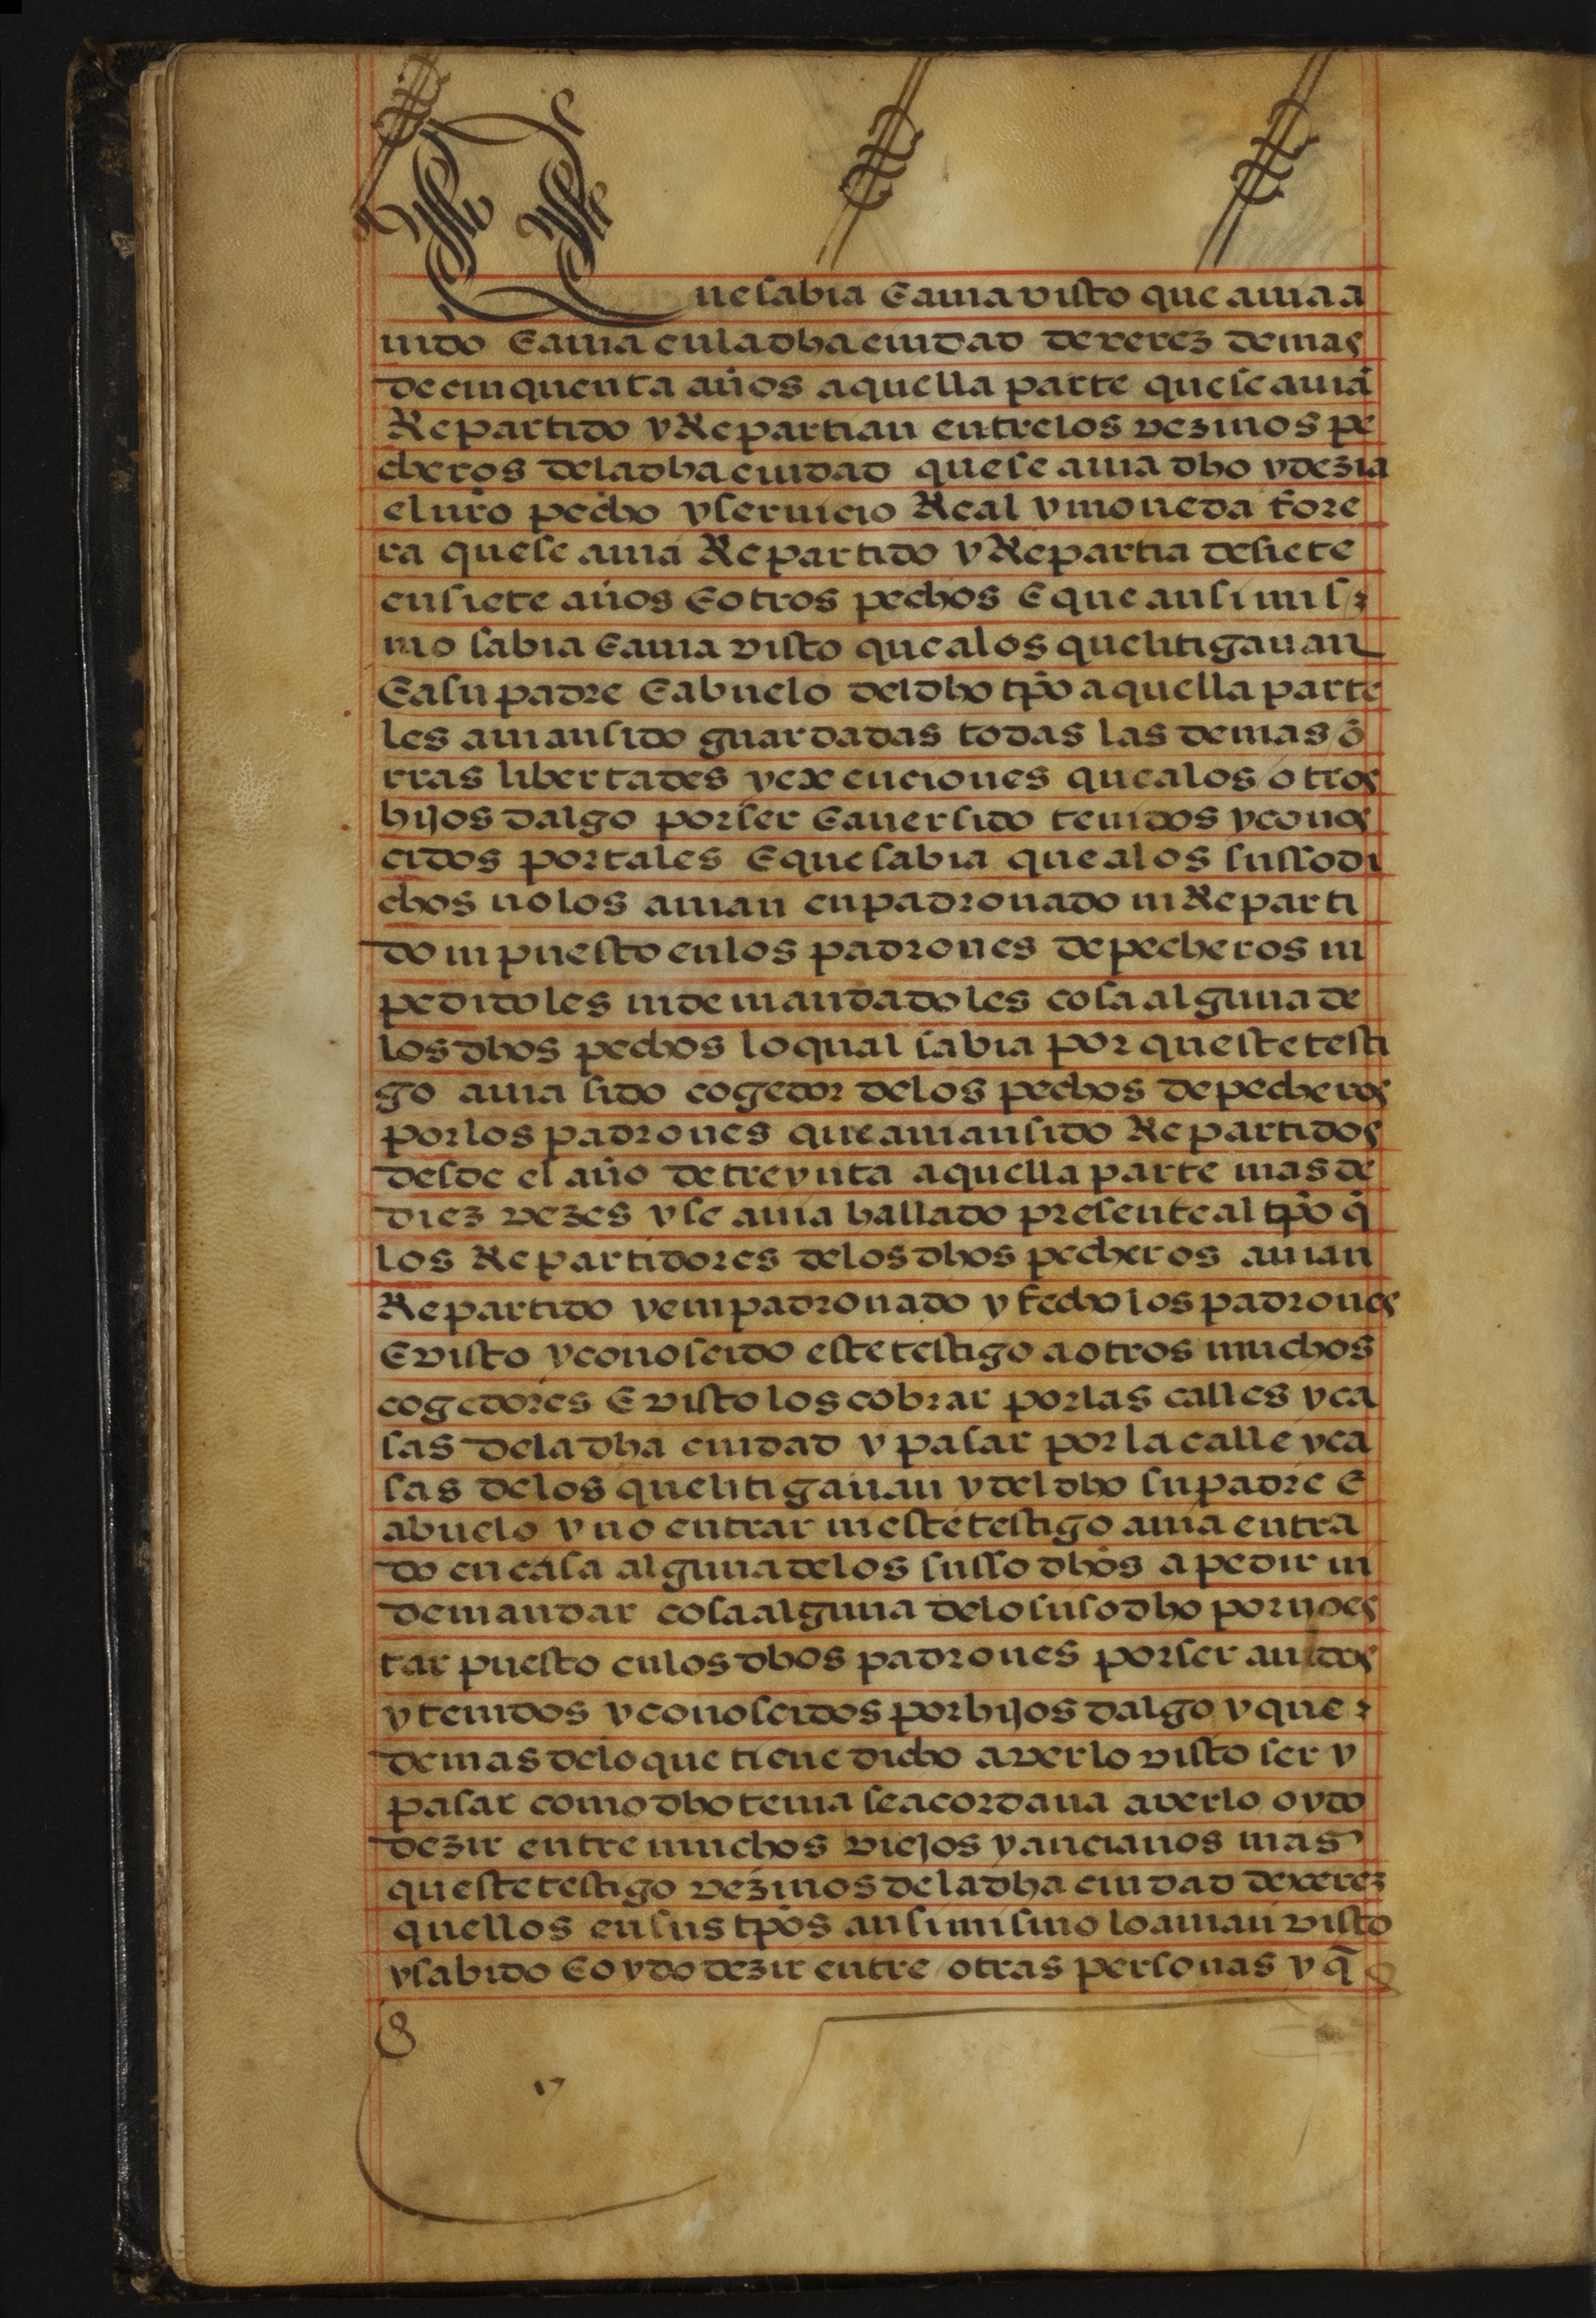 Que sabia E auia visto que auia a
uido E auia en la dha ciudad de xerez de mas
de cinquenta años aquella parte que se auiā
Repartido y Repartian entre los vezinos pe
cheros de la dha ciudad que se auia dho y dezia
el nro pecho y seruicio Real y moneda fore
ra que se auia Repartido y Repartia de siete
en siete años E otros pechos E que ansi mis
mo sabia E auia visto que a los que litigauan
E a su padre E abuelo del dho tpo aquella parte
les auian sido guardadas todas las demas o
rras libertades y exenciones que a los otros
hijos dalgo por ser E auer sido tenidos y conos
cidos por tales E que sabia que a los sussodi
chos no los auian enpadronado ni Reparti
do ni puesto en los padrones de pecheros ni
pedidoles ni demandadoles cosa alguna de
los dhos pechos lo qual sabia por queste testi
go auia sido cogedor de los pechos de pecheros
por los padrones que auian sido Repartidos
desde el año de treynta aquella parte mas de
diez vezes y se auia hallado presente al tpo q̄
los Repartidores de los dhos pecheros auian
Repartido y empadronado y fecho los padrones
E visto y conoscido este testigo a otros muchos
cogedores E vistolos cobrar por las calles y ca
sas de la dha ciudad y pasar por la calle y ca
sas de los que litigauan y del dho su padre E
abuelo y no entrar ni este testigo auia entra
do en casa alguna de los susso dhos a pedir ni
demandar cosa alguna de lo suso dho por no es
tar puesto en los dhos padrones por ser auidos
y tenidos y conoscidos por hijos dalgo y que
demas de lo que tiene dicho averlo visto ser y
pasar como dho tenia se acordaua averlo oydo
dezir entre muchos viejos y ancianos mas
queste testigo vezinos de la dha ciudad de xerez
quellos en sus tpos ansi mismo lo auian visto
y sabido E oydo dezir entre otras personas y q̄